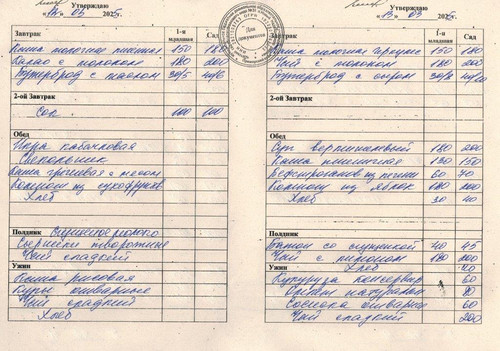 Утверждаю
03 2025г.
Завтрак
1-я младшая
Сад
Каша молочная пшенная 150 180
Какао с молоком 180 200
Бутерброд с маслом 30/5 40/6
2-ой Завтрак
Сок 100 100
Обед
Икра кабачковая
Свекольник
Каша гречневая с мясом
Компот из сухофрукт
Хлеб
Полдник Сгущеное молоко
Сырники творожные
Чай сладкий
Ужин
Каша рисовая
Куры отварные
Чай сладкий
Хлеб
Для документов
Утверждаю
13 03 2025г.
Завтрак
1-я младшая
Сад
Каша молочная 150 180
Чай с молоком 180 200
Бутерброд с сыром
2-ой Завтрак
Обед
Суп вермишелевый 180 200
Каша пшеничная 130 150
Бефстроганов из печени 60 70
Компот из яблок 180 200
Хлеб 30 40
Полдник
Батон со сгущенкой 40 45
Чай с лимоном 180 200
Ужин Хлеб 20
Кукуруза консервир 60
Омлет натуральн 80
Сосиска отварная 60
Чай сладкий 200